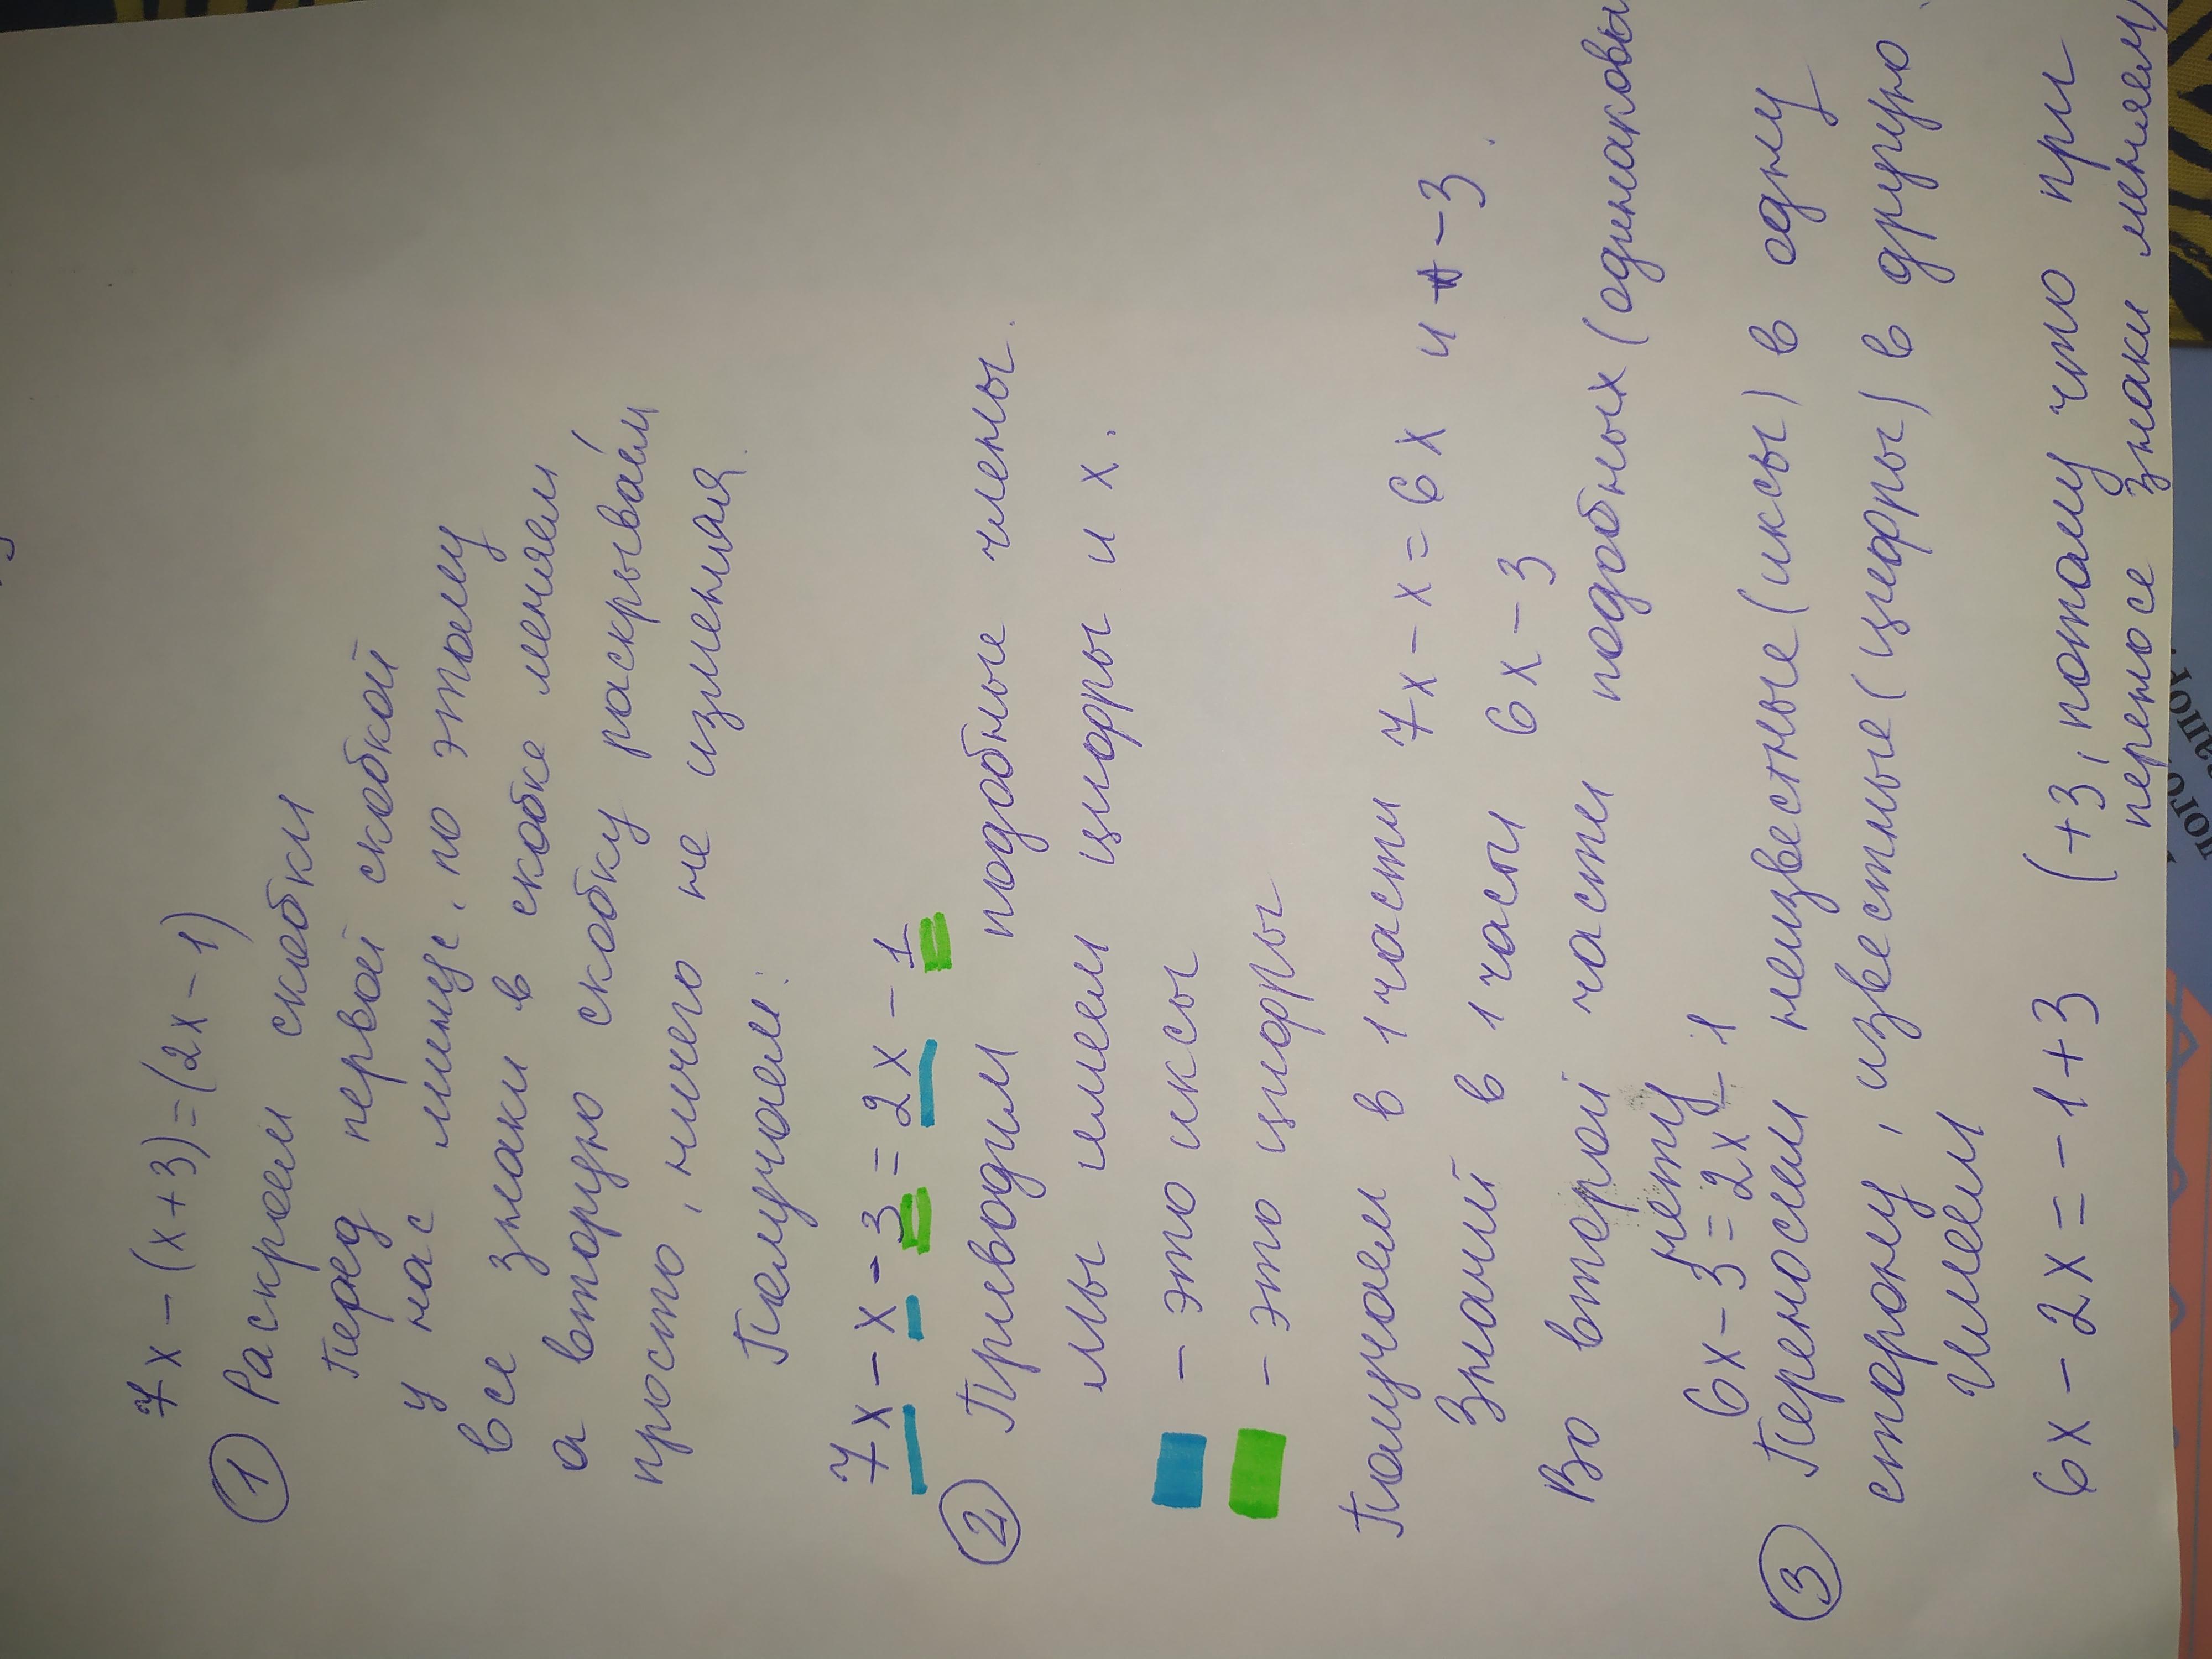 7x - (x+3) = (2x - 1)
① Раскроем скобки
Перед первой скобкой
у нас минус, по этому
все знаки в скобке меняем
а вторую скобку раскрываем
просто, ничего не изменяя.
Получаем:
7x - x - 3 = 2x - 1
② Приводим подобные члены.
мы имеем цифры и x.
- это иксы
- это цифры
Получаем в 1 части 7x - x = 6x и -3.
Значит в 1 часы 6x - 3
Во второй части подобных (одинаковы
нету
6x - 3 = 2x - 1
③ Переносим неизвестные (иксы) в одну
сторону, известные (цифры) в другую
Имеем
6x - 2x = -1 + 3 (+3, потому что при
переносе знаки меняем)